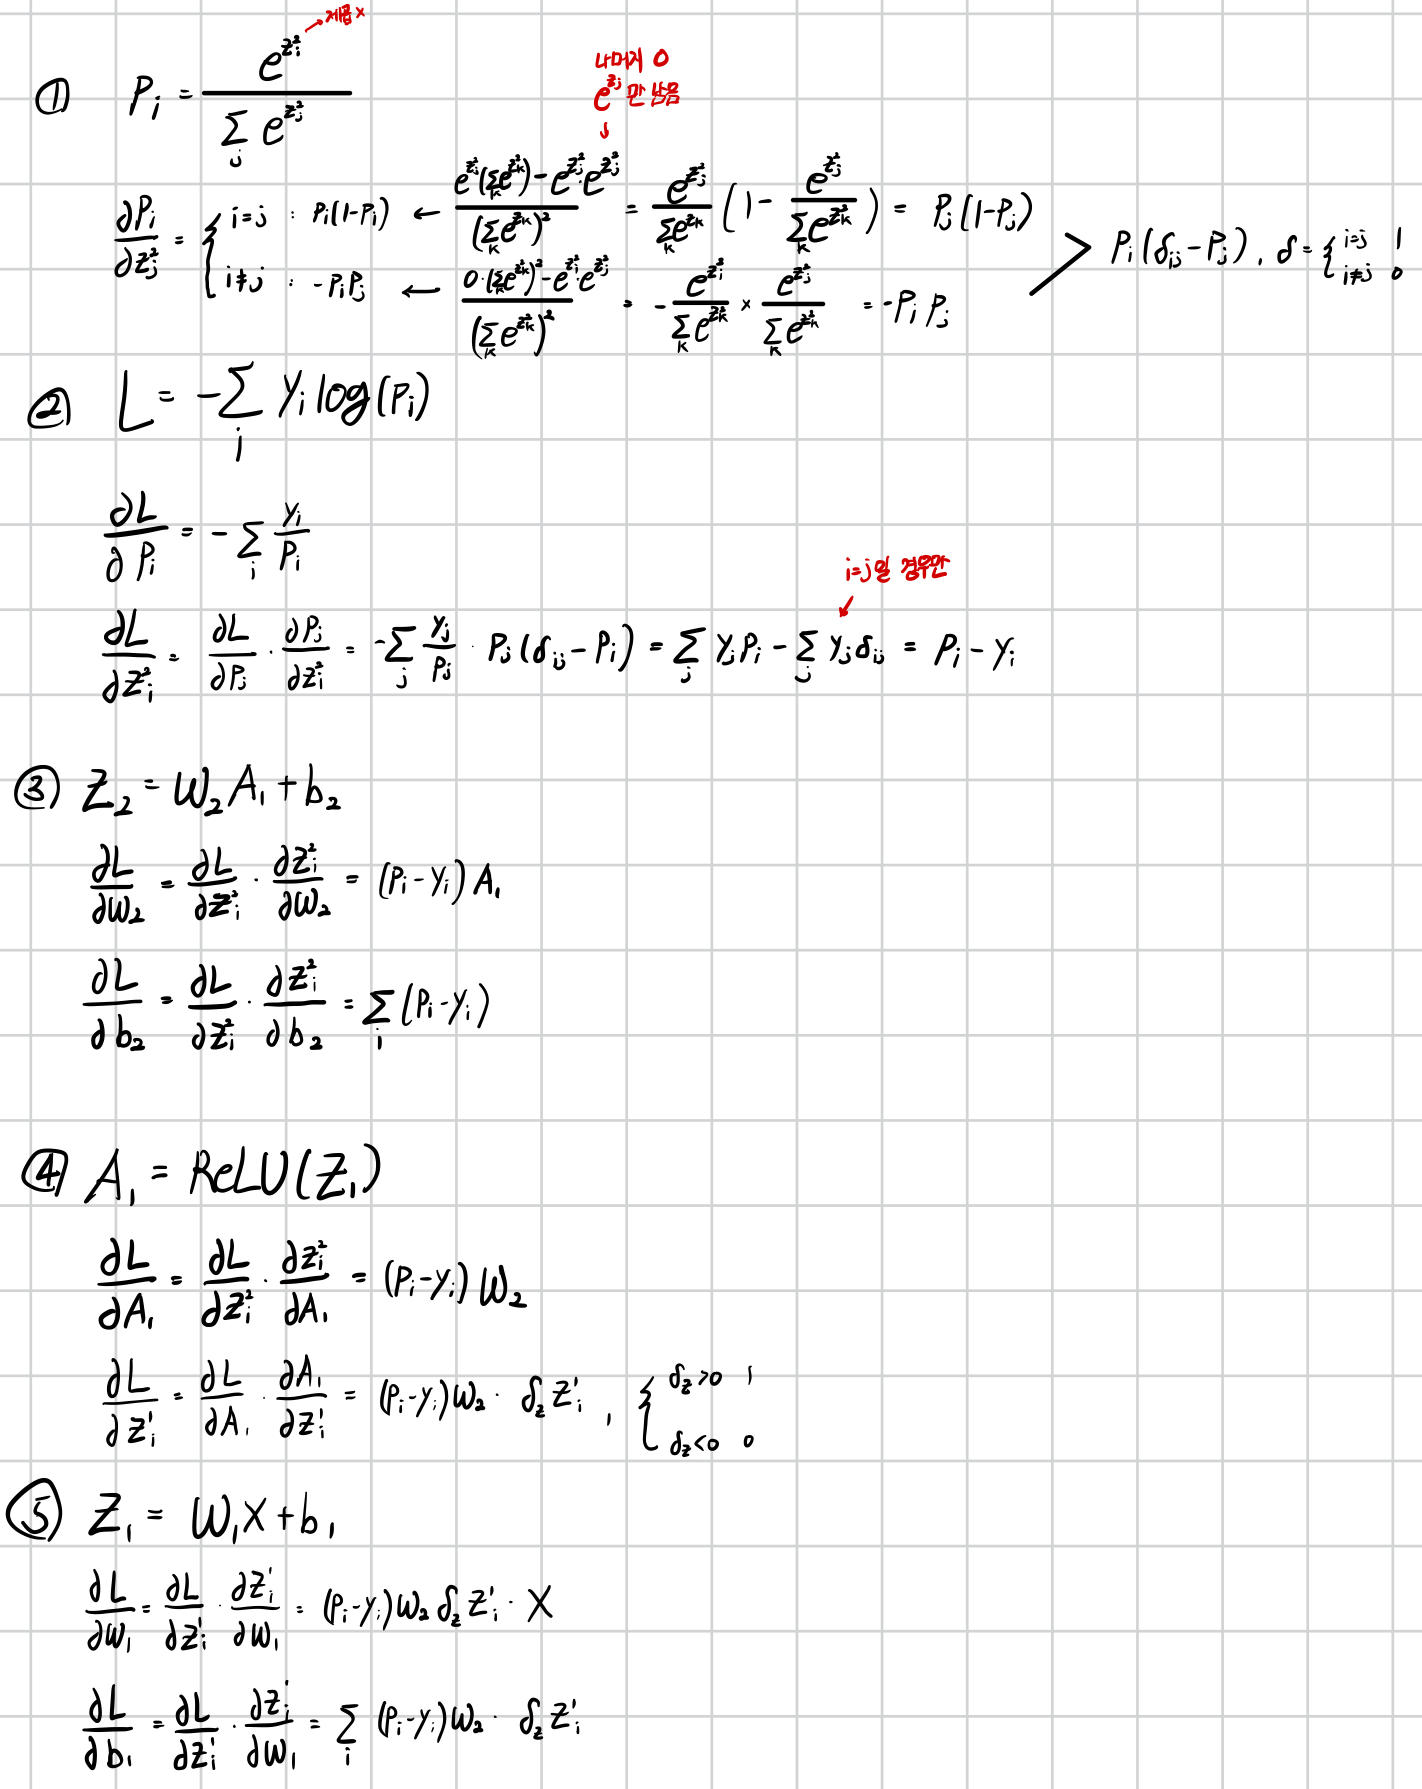 ① P_i = e^{z_i^2} / Σ_j e^{z_j^2} → 제곱 x
나머지 0
e^{z_j} 만 남음 ↓
∂P_i/∂z_j^2 = { i=j : P_i(1-P_i) ← (e^{z_j^2}(Σ_k e^{z_k^2}) - e^{z_j^2} e^{z_j^2}) / (Σ_k e^{z_k^2})^2 = e^{z_j^2} / Σ_k e^{z_k} (1 - e^{z_j^2} / Σ_k e^{z_k^2}) = P_j(1-P_j)
i≠j : -P_i P_j ← (0·(Σ_k e^{z_k^2})^2 - e^{z_i^2}·e^{z_j^2}) / (Σ_k e^{z_k^2})^2 = - e^{z_i^2} / Σ_k e^{z_k^2} × e^{z_j^2} / Σ_k e^{z_k^2} = -P_i P_j
> P_i(δ_ij - P_j), δ = { i=j 1
i≠j 0
② L = -Σ_i y_i log(P_i)
∂L/∂P_i = -Σ_i y_i/P_i
i=j일 경우만 ↙
∂L/∂z_i^2 = ∂L/∂P_j · ∂P_j/∂z_i^2 = -Σ_j y_j/P_j · P_j(δ_ij - P_i) = Σ_j y_j P_i - Σ_j y_j δ_ij = P_i - y_i
③ Z_2 = W_2 A_1 + b_2
∂L/∂W_2 = ∂L/∂z_i^2 · ∂z_i^2/∂W_2 = (P_i - y_i) A_1
∂L/∂b_2 = ∂L/∂z_i^2 · ∂z_i^2/∂b_2 = Σ_i (P_i - y_i)
④ A_1 = ReLU(Z_1)
∂L/∂A_1 = ∂L/∂z_i^2 · ∂z_i^2/∂A_1 = (P_i - y_i) W_2
∂L/∂z_i^1 = ∂L/∂A_1 · ∂A_1/∂z_i^1 = (P_i - y_i) W_2 · δ_z z_i^1 , { δ_z > 0 1
δ_z < 0 0
⑤ Z_1 = W_1 X + b_1
∂L/∂W_1 = ∂L/∂z_i^1 · ∂z_i^1/∂W_1 = (P_i - y_i) W_2 δ_z z_i^1 · X
∂L/∂b_1 = ∂L/∂z_i^1 · ∂z_i^1/∂W_1 = Σ_i (P_i - y_i) W_2 · δ_z z_i^1